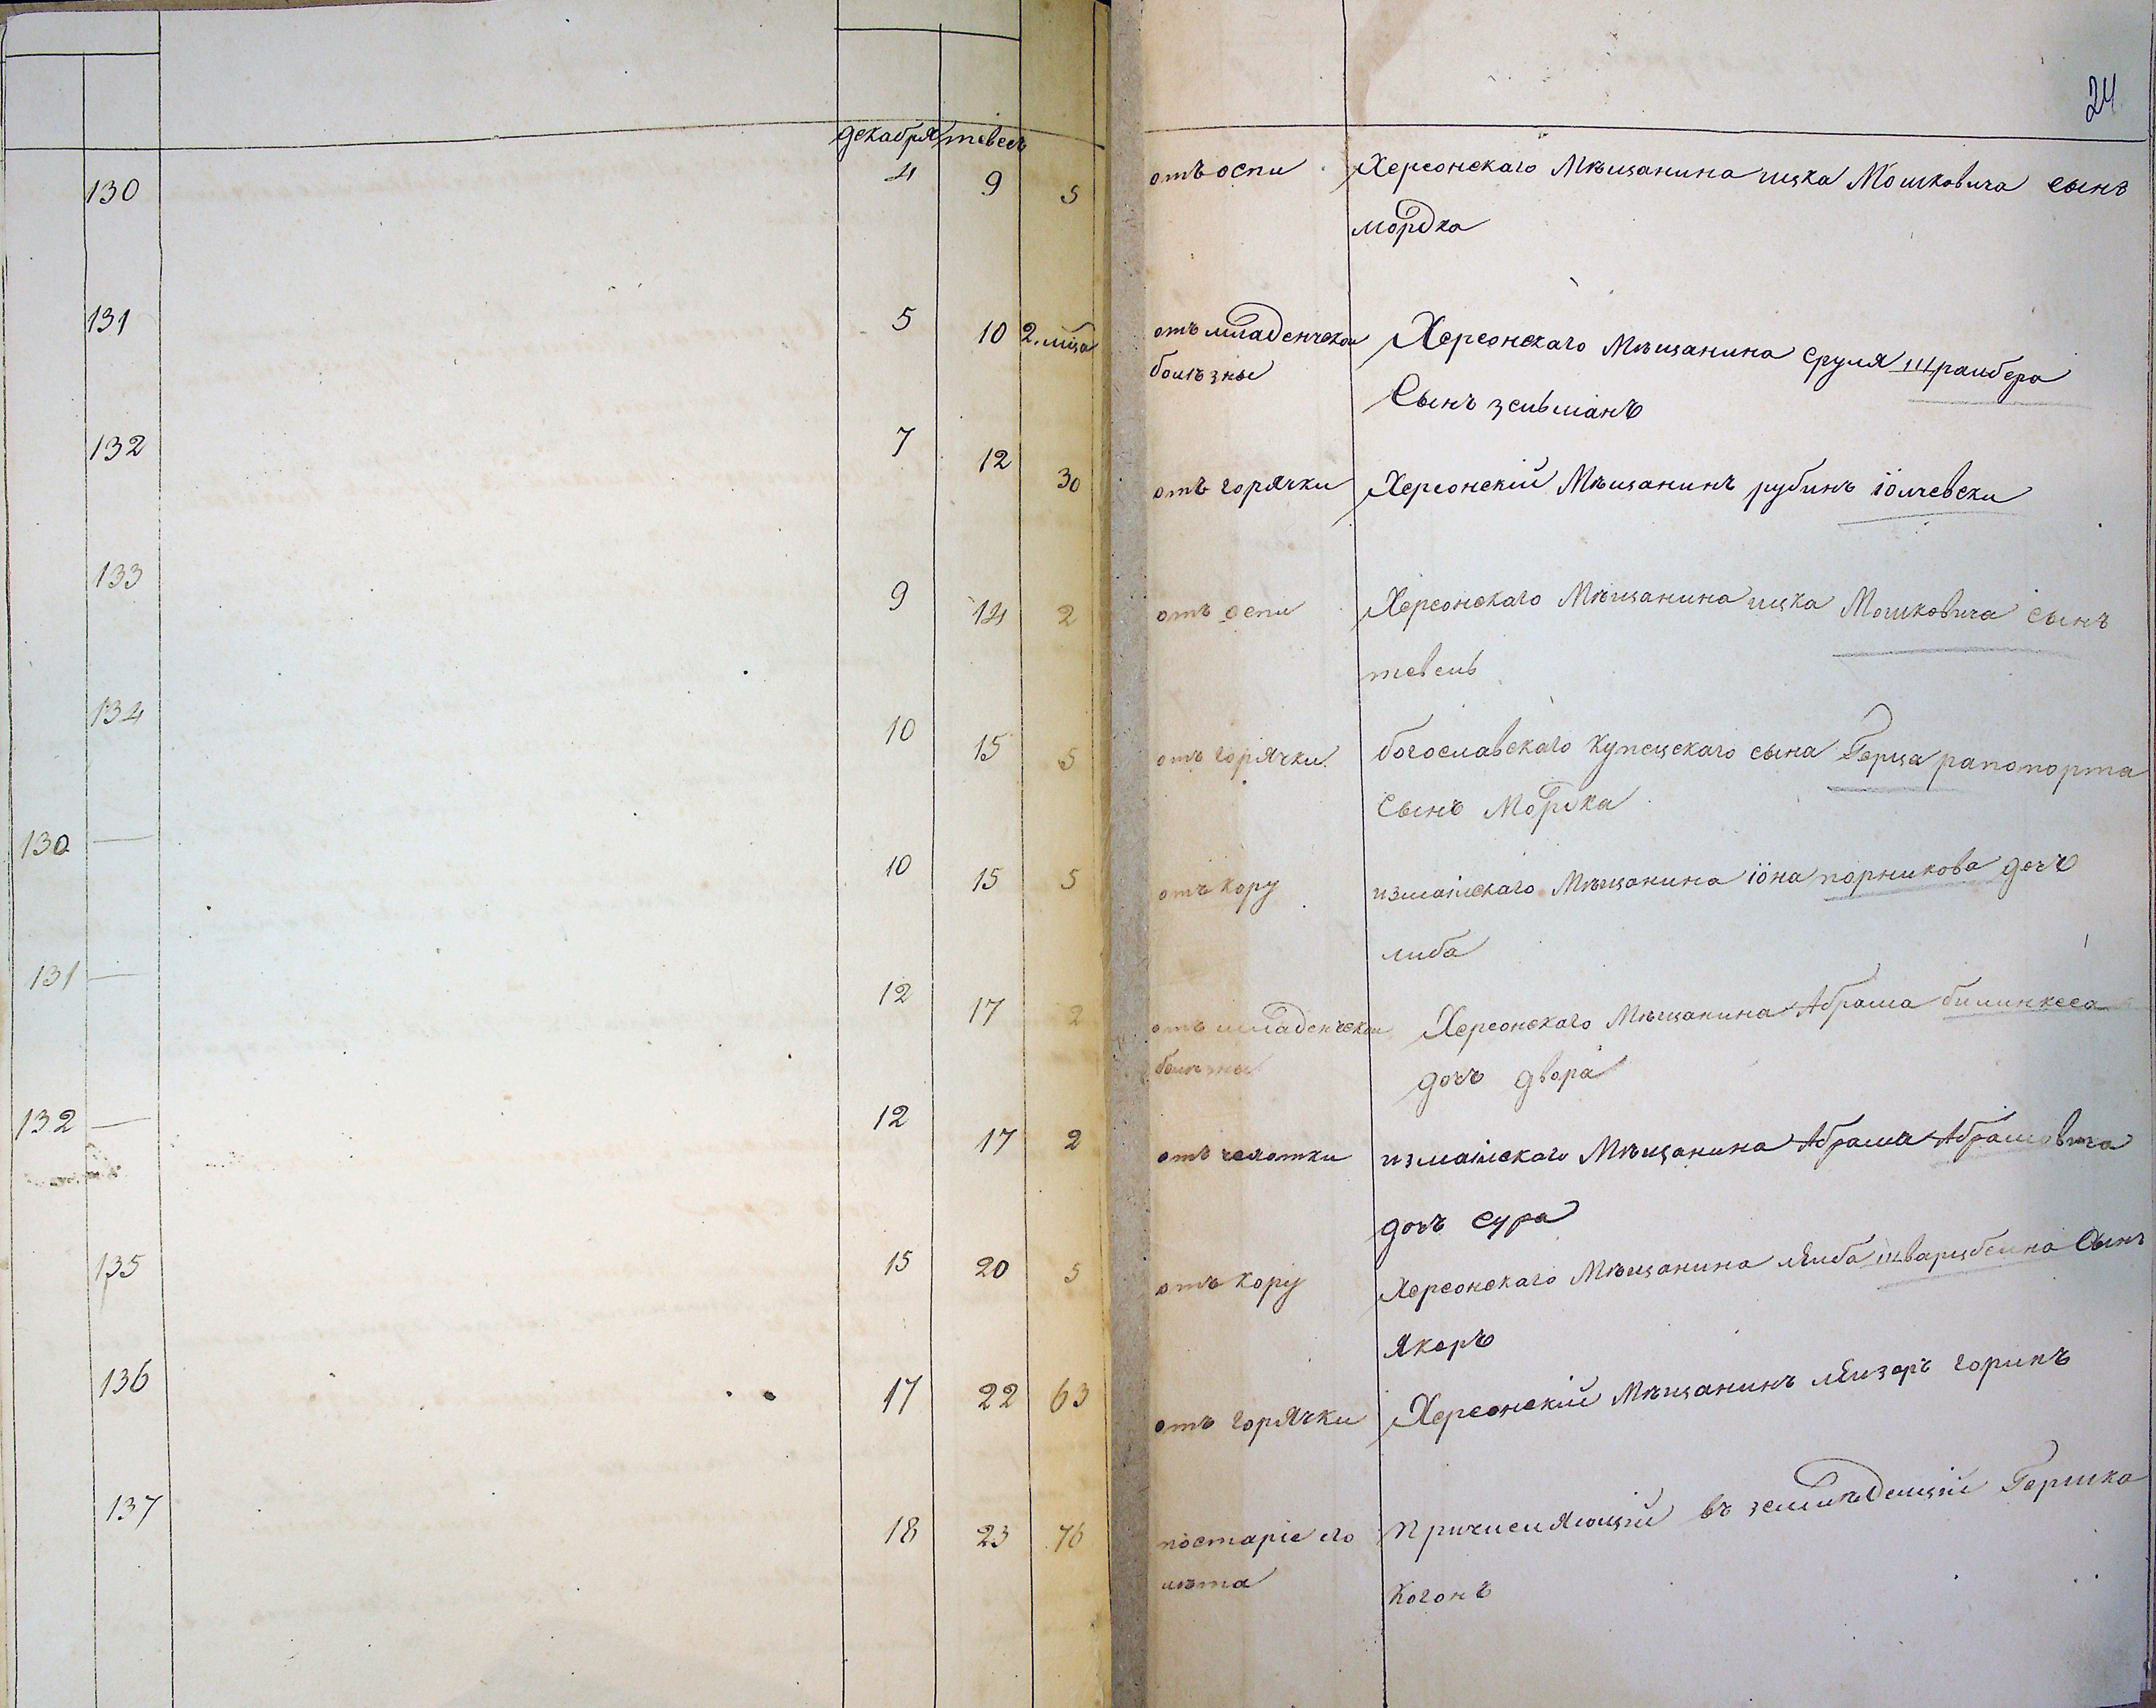 24
декабря тевесъ
130 4 9 5 отъ оспи Херсонскаго Мѣщанина ицка Мошковича сынъ
мордка
131 5 10 2.мца отъ младенческои Херсонскаго Мѣщанина сруля Шраибера
болѣзны Сынъ зельманъ
132 7 12 30 отъ горячки Херсонскій Мѣщанинъ рубинъ
133 9 14 2 отъ оспи Херсонскаго Мѣщанина ицка Мошковича сынъ
тевель
134 10 15 5 отъ горячки богославскаго купецскаго сына Герца рапопорта
Сынъ Мордка
130 — 10 15 5 отъ кору измаилскаго Мѣщанина іона порникова дочъ
либа
131 — 12 17 2 отъ младенческои Херсонскаго Мѣщанина Абрама билинкеса
болѣзны дочъ двора
132 — 12 17 2 отъ чехотки измаилскаго Мѣщанина Абрама Абрамовича
дочъ сура
135 15 20 5 отъ кору Херсонскаго Мѣщанина лейба шварцбеина Сынъ
якеръ
136 17 22 63 отъ горячки Херсонскій Мѣщанинъ лейзеръ горинъ
137 18 23 76 постаріе его Причисляющій въ Гершка
лѣта Когонъ